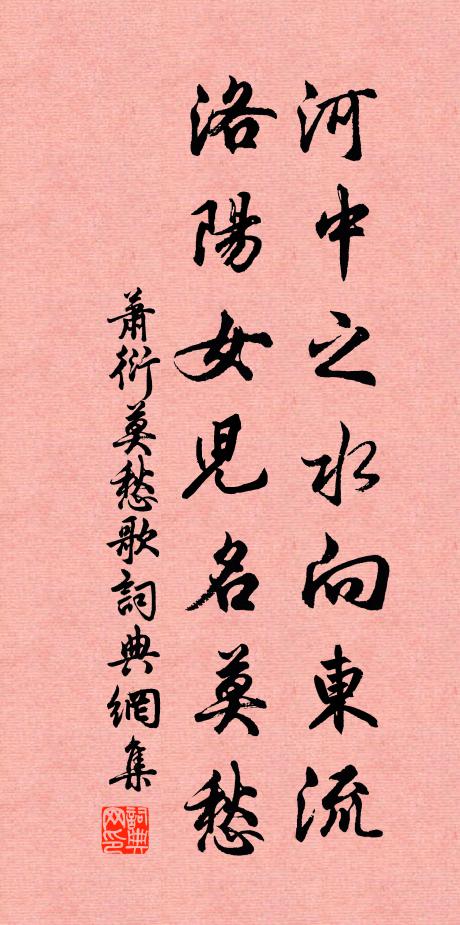 河中之水向東流
洛陽女兒名莫愁
蕭衍莫愁歌詞典網集
詞典网印